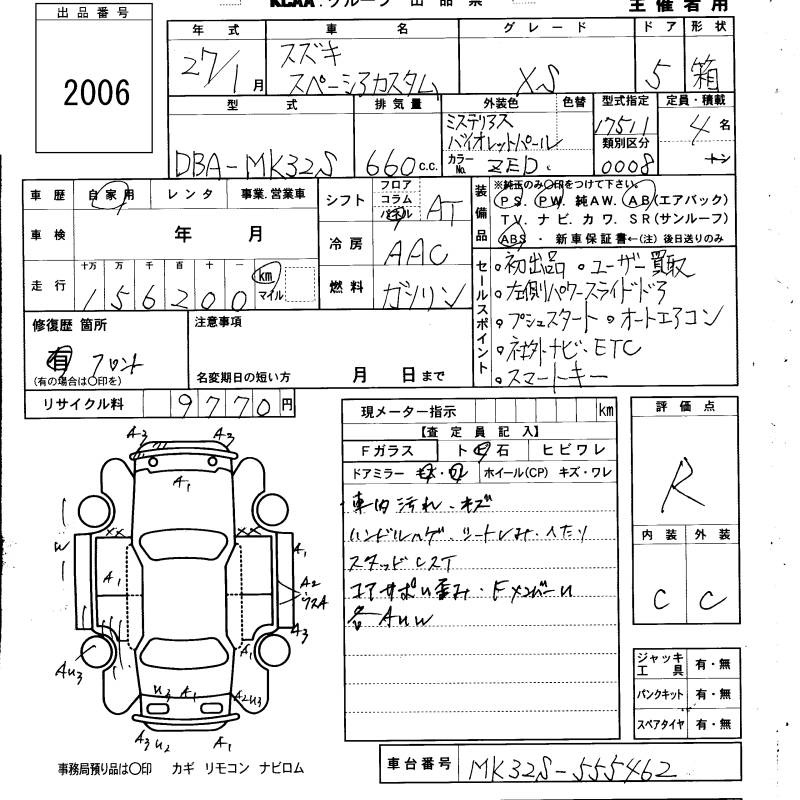 出品番号
2006
KCAA グループ 出品票
主催者用
年式 車名 グレード ドア 形状
27/1月 スズキ スペーシアカスタム XS 5 箱
型式 排気量 外装色 色替 型式指定 定員・積載
DBA-MK32S 660c.c. ミステリアス バイオレットパール 17511 4名
カラーNo. ZED 類別区分 0008 トン
車歴 自家用 レンタ 事業.営業車
車検 年 月
走行 十万 万 千 百 十 一
156200 km マイル
シフト フロア コラム パネル AT
冷房 AAC
燃料 ガソリン
装備品
※純正のみ〇印をつけて下さい。
PS. PW. 純AW. AB(エアバック)
TV. ナビ. カワ. SR(サンルーフ)
ABS ・ 新車保証書←(注) 後日送りのみ
セールスポイント
。初出品 。ユーザー買取
。左側パワースライドドア
。プシュスタート 。オートエアコン
。社外ナビ・ETC
。スマートキー
修復歴 箇所
有 フロント
(有の場合は〇印を)
注意事項
名変期日の短い方 月 日まで
リサイクル料 9770円
現メーター指示 km
【査定員記入】
Fガラス ト 石 ヒビワレ
ドアミラー キズ・ワレ ホイール(CP) キズ・ワレ
車内汚れ・キズ
スタッド
各AUW
評価点
R
内装 外装
C C
A3 A3
A1
W XX XX A1
A1 A2
A3
AU3 A1
U3 A1 A2U3
A3 U2 A1
ジャッキ工具 有・無
パンクキット 有・無
スペアタイヤ 有・無
事務局預り品は〇印 カギ リモコン ナビロム
車台番号 MK32S-555462